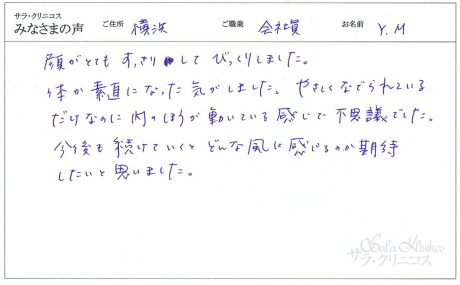 サラ・クリニコス
みなさまの声 ご住所 横浜 ご職業 会社員 お名前 Y.M
顔がとてもすっきりして びっくりしました。
体が素直になった気がしました。やさしくなでられている
だけなのに 内のほうが動いている感じで 不思議でした。
今後も 続けていくと どんな風に感じるのか期待
したいと思いました。
Sala Klinikos
サラ・クリニコス